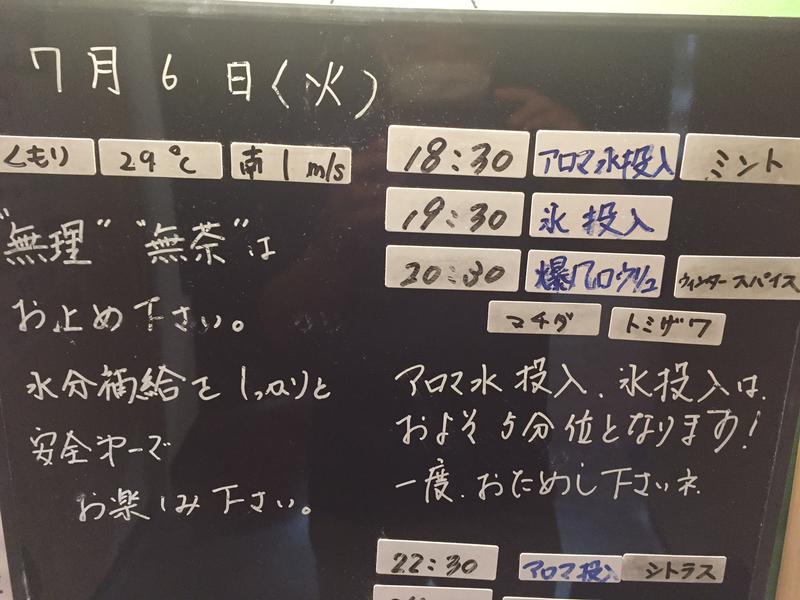 7月6日(火)
くもり 29℃ 南1m/s
"無理" "無茶"は
お止め下さい。
水分補給をしっかりと
安全第一で
お楽しみ下さい。
18:30 アロマ水投入 ミント
19:30 氷投入
20:30 爆アロウリュ ウィンタースパイス
マチダ トミザワ
アロマ水投入、氷投入は、
およそ5分位となります!
一度、おためし下さいネ
22:30 アロマ投入 シトラス